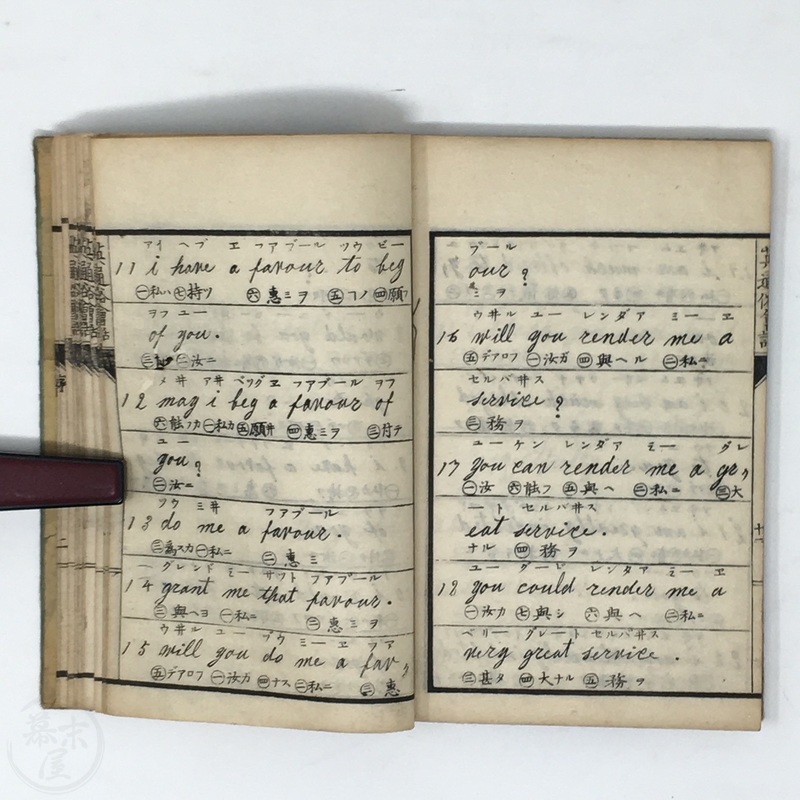 アイ ヘブ エ ファブール ツウ ビー
11 i have a favour to beg
㊀私ハ ㊆持ツ ㊅惠ミヲ ㊄フノ ㊃願フ
ヲフ ユー
of you.
㊁汝ニ
メ井 ア井 ベッグ エ ファブール ヲフ
12 may i beg a favour of
㊅能フカ ㊀私カ ㊄願井 ㊃惠ミヲ ㊂対テ
ユー
you?
㊁汝ニ
ヅウ ミ井 ファブール
13 do me a favour.
㊂為スカ ㊀私ニ ㊁惠ミ
グレンド ミー サフト ファブール
14 grant me that favour.
㊂與ヘヨ ㊀私ニ ㊁惠ミヲ
ウ井ル ユー ヅウ ミー エ ファ
15 will you do me a fav
㊄デアロフ ㊀汝カ ㊃ナス ㊁私ニ ㊂惠
ブール
our?
ミヲ
ウ井ル ユー レンダア ミー エ
16 will you render me a
㊄デアロフ ㊀汝カ ㊃與ヘル ㊁私ニ
セルバ井ス
service?
㊂務ヲ
ユー ケン レンダア ミー グレ
17 you can render me a gr
㊀汝 ㊅能フ ㊄與ヘ ㊁私ニ ㊂大
ート セルバ井ス
eat service.
ナル ㊃務ヲ
ユー クード レンダア ミー エ
18 you could render me a
㊀汝カ ㊆與シ ㊅與ヘ ㊁私ニ
ベリー グレート セルバ井ス
very great service.
㊂甚タ ㊃大ナル ㊄務ヲ
幕末屋